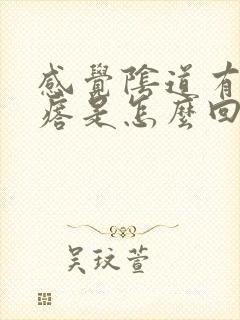 感覺陰道有
痞是怎麼回
吳玟萱